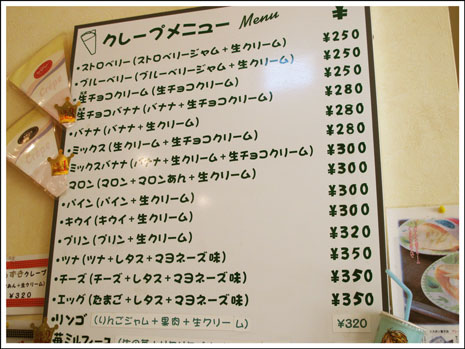 クレープメニュー Menu ¥
・ストロベリー(ストロベリージャム+生クリーム) ¥250
・ブルーベリー(ブルーベリージャム+生クリーム) ¥250
・生チョコクリーム(生チョコクリーム) ¥250
・生チョコバナナ(バナナ+生チョコクリーム) ¥280
・バナナ(バナナ+生クリーム) ¥280
・ミックス(生クリーム+生チョコクリーム) ¥280
・ミックスバナナ(バナナ+生クリーム+生チョコクリーム) ¥300
・マロン(マロン+マロンあん+生クリーム) ¥300
・パイン(パイン+生クリーム) ¥300
・キウイ(キウイ+生クリーム) ¥300
・プリン(プリン+生クリーム) ¥320
・ツナ(ツナ+レタス+マヨネーズ味) ¥350
・チーズ(チーズ+レタス+マヨネーズ味) ¥350
・エッグ(たまご+レタス+マヨネーズ味) ¥350
・リンゴ(りんごジャム+果肉+生クリーム) ¥320
苺ミルフィーユ
クレープ
あん+生クリーム)
¥320